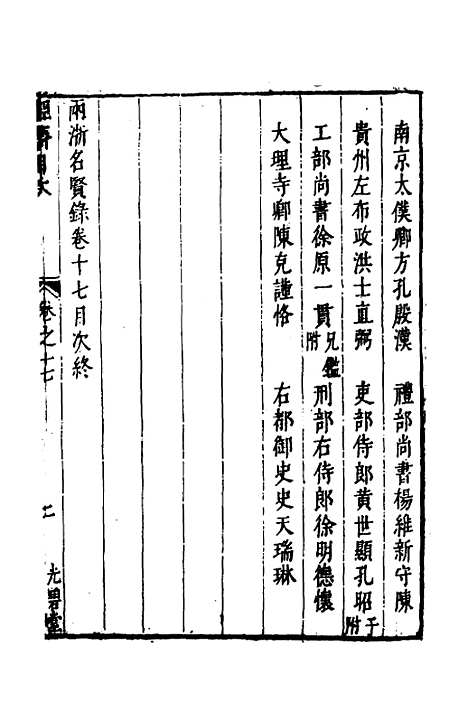 南京太僕卿方孔殷漢　禮部尚書楊維新守陳
貴州左布政洪士直弼　吏部侍郎黃世顯孔昭子附
工部尚書徐原一貫兄鑑附　刑部右侍郎徐明德懷
大理寺卿陳克謹恪　右都御史史天瑞琳
兩浙名賢錄卷十七目次終
卷之十七
光碧堂